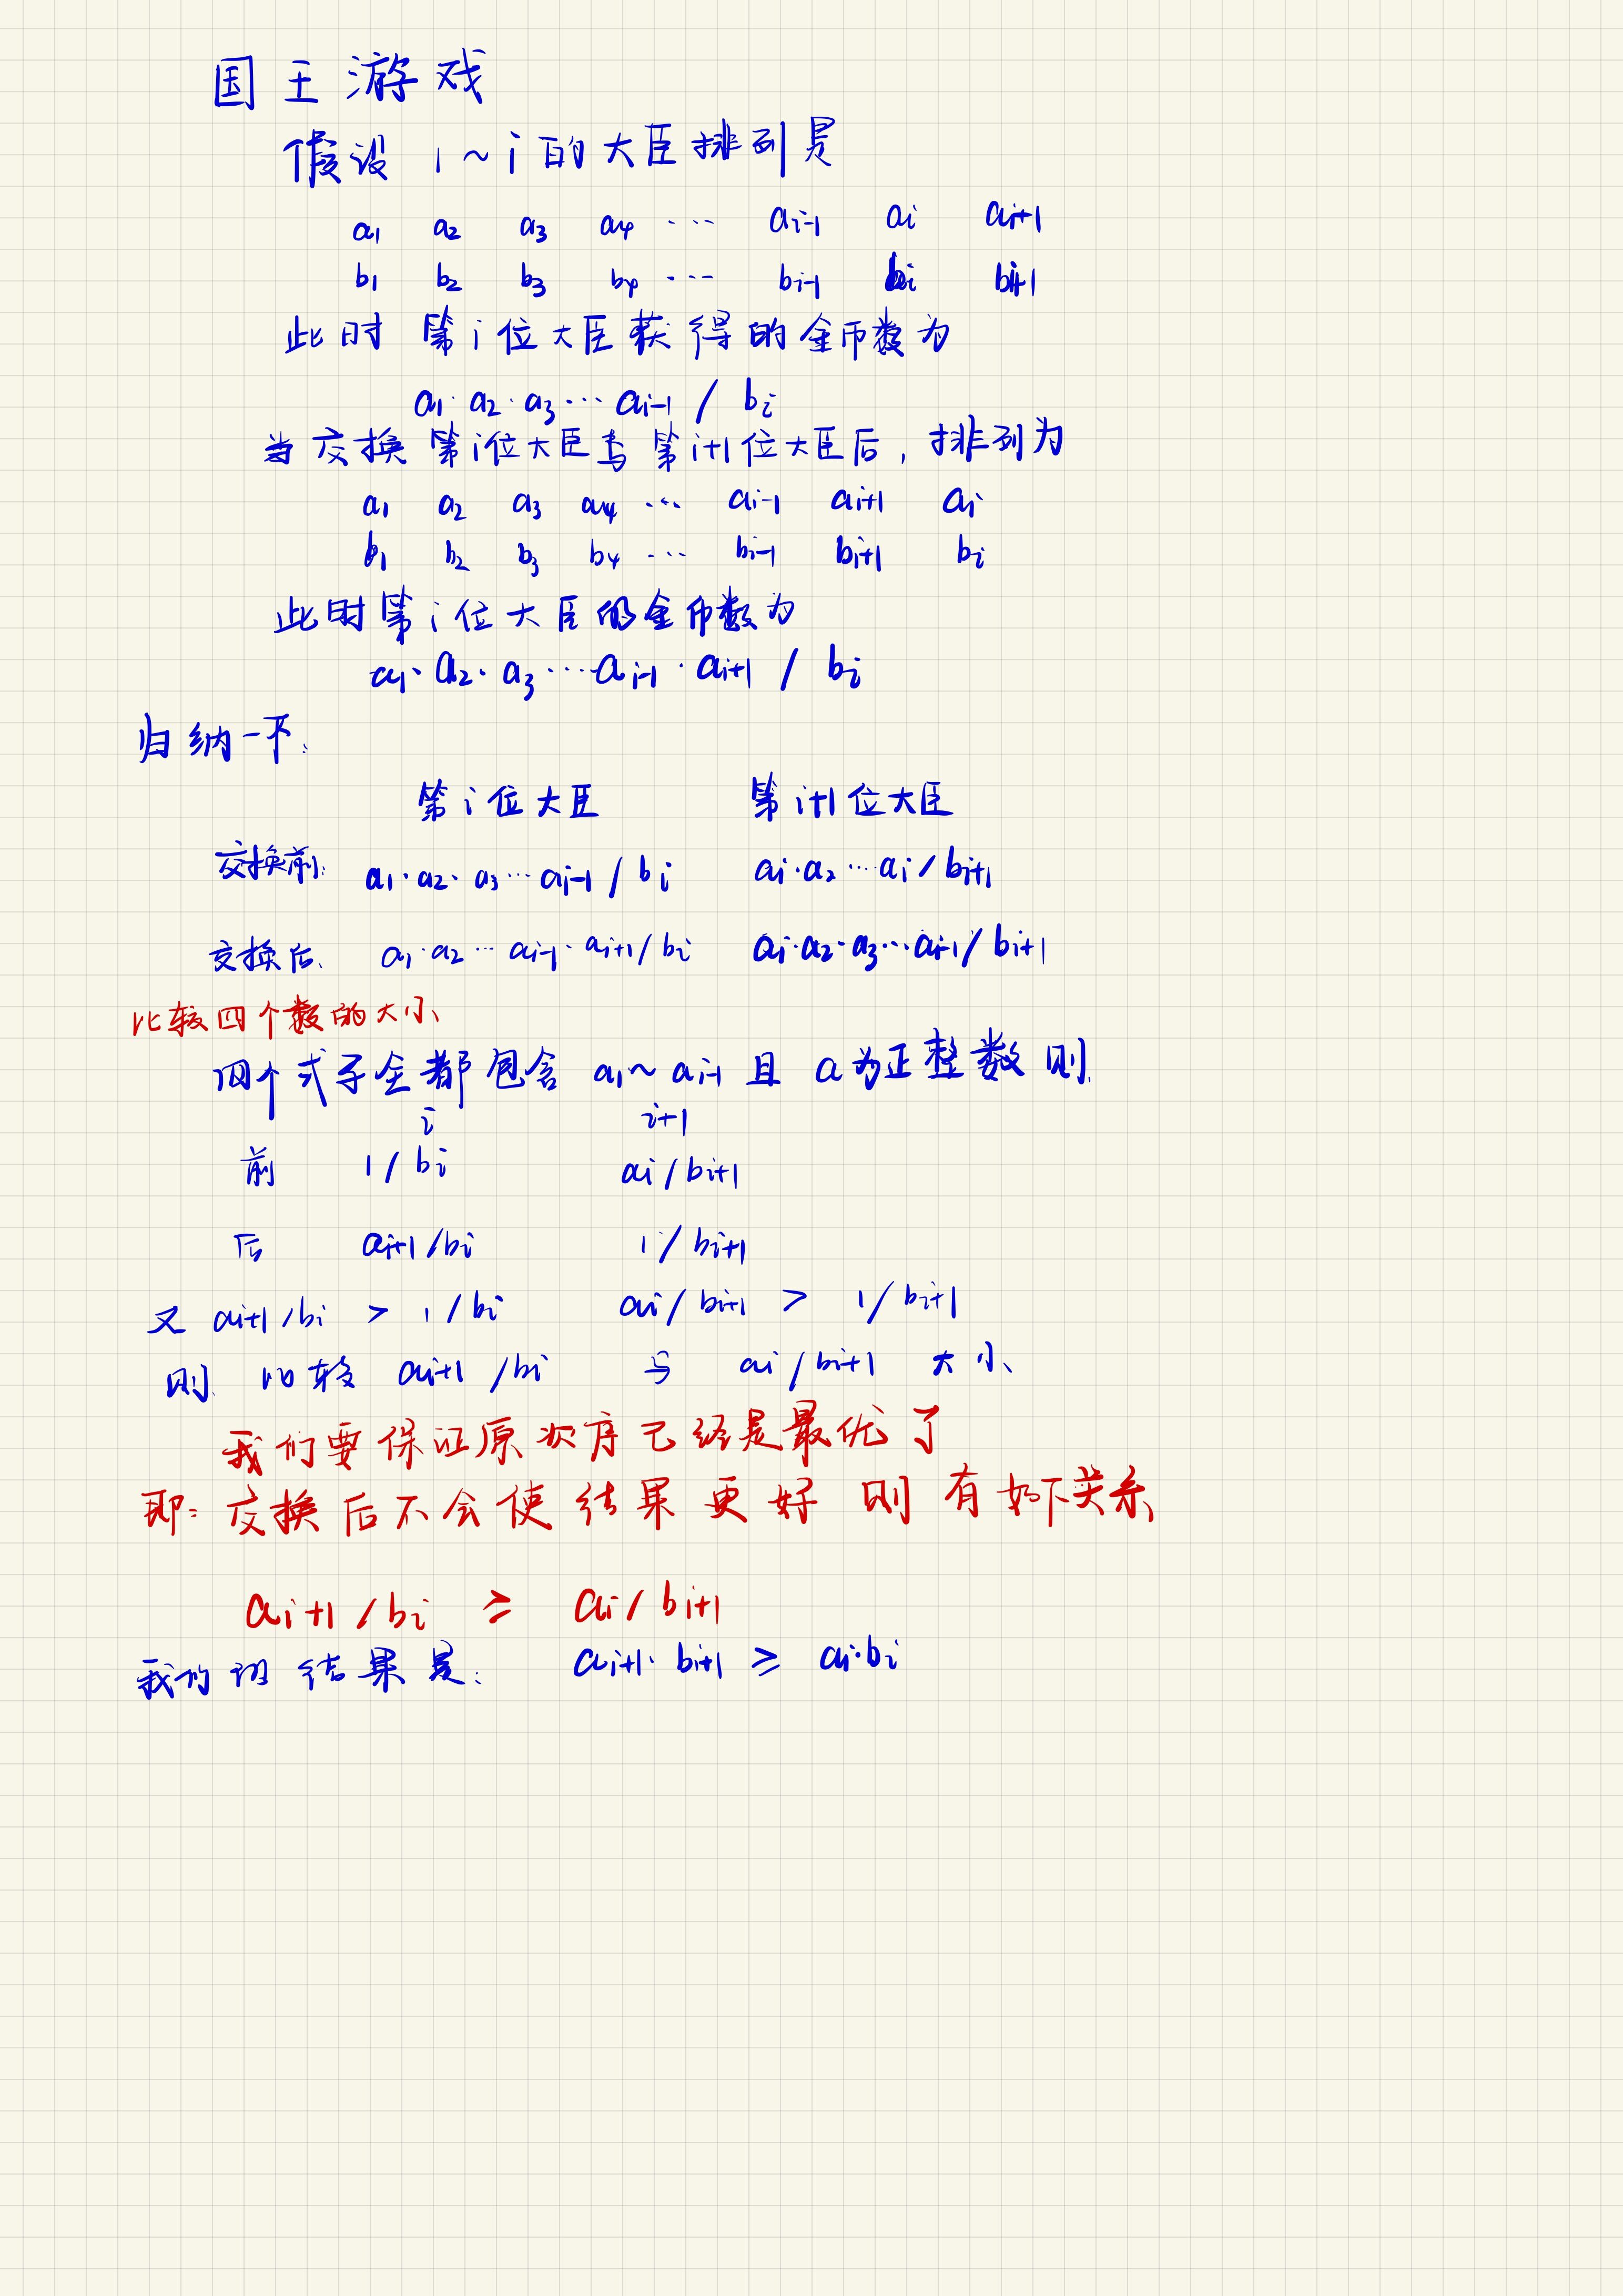 国王游戏
假设 1~i的大臣排列是
a1 a2 a3 a4 … ai-1 ai ai+1
b1 b2 b3 b4 … bi-1 bi bi+1
此时 第i位大臣获得的金币数为
a1·a2·a3…ai-1 / bi
当交换第i位大臣与第i+1位大臣后,排列为
a1 a2 a3 a4 … ai-1 ai+1 ai
b1 b2 b3 b4 … bi-1 bi+1 bi
此时第i位大臣的金币数为
a1·a2·a3…ai-1·ai+1 / bi
归纳一下:
第i位大臣 第i+1位大臣
交换前: a1·a2·a3…ai-1 / bi ai·a2…ai / bi+1
交换后: a1·a2…ai-1·ai+1 / bi ai·a2·a3…ai-1 / bi+1
比较四个数的大小
四个式子全都包含 a1~ai-1 且 a为正整数 则
i i+1
前 1 / bi ai / bi+1
后 ai+1 / bi 1 / bi+1
又 ai+1 / bi > 1 / bi ai / bi+1 > 1 / bi+1
则 比较 ai+1 / bi 与 ai / bi+1 大小
我们要保证原次序已经是最优了
即: 交换后不会使结果更好 则有如下关系
ai+1 / bi ≥ ai / bi+1
我们的结果是: ai+1·bi+1 ≥ ai·bi